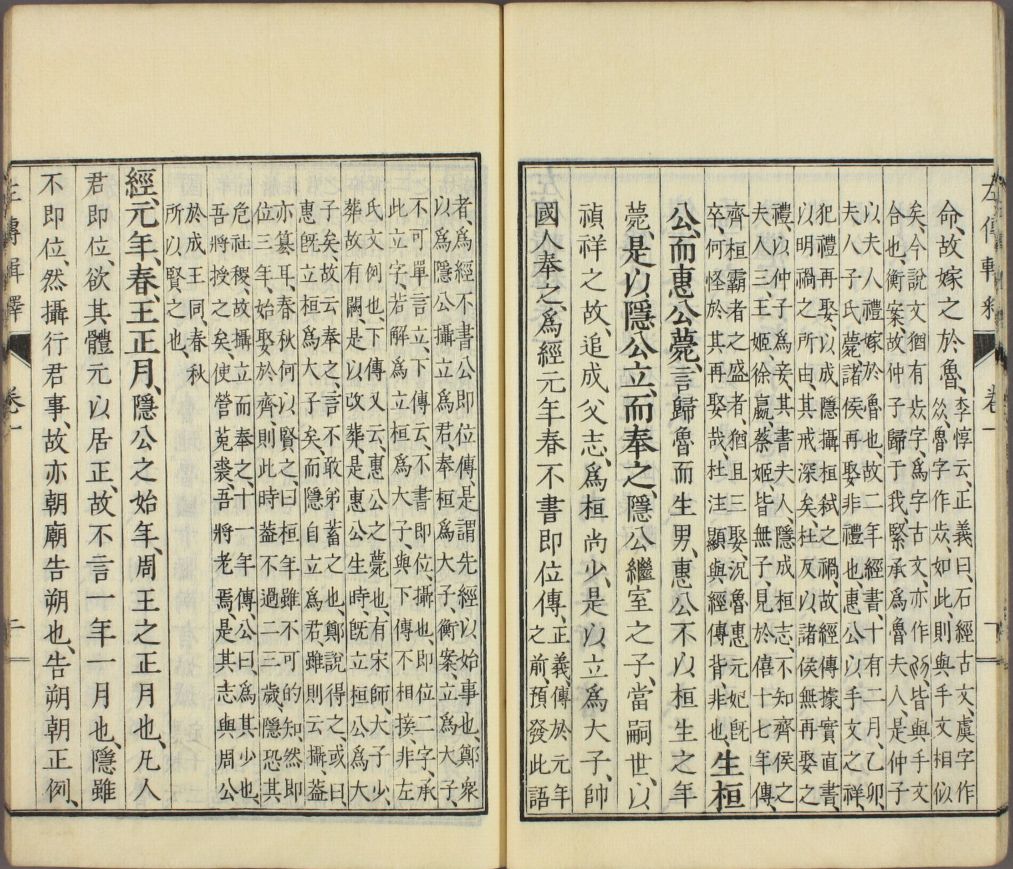 左傳輯釋 卷一 一
命、故嫁之於魯、李惇云、正義曰、石經古文、虞字作
㕕、魯字作㱑、如此則與手文相似
矣、今說文猶有㱑字、爲字古文、亦作、皆與手文
合也、衡案、故仲子歸于我、緊承爲魯夫人、是仲子
以夫人禮嫁於魯也、故二年經書、十有二月、乙卯
夫人子氏薨、諸侯再娶、非禮也、惠公以手文之祥、
犯禮再娶、以成隱攝桓弑之禍、故經傳據實直書、
以明禍之所由、其戒深矣、杜反以諸侯無再娶之
禮、以仲子爲妾、其書夫人、隱成桓志、不知齊侯之
夫人三、王姬、徐嬴、蔡姬皆無子、見於僖十七年傳、
齊桓霸者之盛者、猶且三娶、況魯惠元妃既
卒、何怪於其再娶哉、杜注顯與經傳背、非也、生桓
公、而惠公薨、言歸魯而生男、惠公不以桓生之年
薨、是以隱公立、而奉之、隱公繼室之子、當嗣世、以
禎祥之故、追成父志、爲桓尚少、是以立爲大子、帥
國人奉之、爲經元年春不書即位傳、正義、傳於元年
之前預發此語
者、爲經不書公即位傳、是謂先經以始事也、鄭衆
以爲隱公攝立爲君、奉桓爲大子、衡案、立爲大子、
不可單言立、下傳云、不書即位、攝也、即位二字、承
此立字、若解爲立桓爲大子、與下傳不相接、非左
氏文例也、下傳又云、惠公之薨也、有宋師、大子少、
葬故有闕、是以改葬、是惠公生時、既立桓公爲大
子矣、故云奉之、言不敢弟蓄之也、鄭說得之、或曰、
惠既立桓爲大子矣、而隱自立爲君、雖則云攝、蓋
亦篡耳、春秋何以賢之、曰、桓年雖不可的知、然即
位三年、始娶於齊、則此時蓋不過二三歲、隱恐其
危社稷、故攝立而奉之、十一年傳、公曰、爲其少也、
吾將授之矣、使營菟裘、吾將老焉、是其志與周公
於成王同、春秋
所以賢之也、
經、元年、春、王正月、隱公之始年、周王之正月也、凡人
君即位、欲其體元以居正、故不言一年一月也、隱雖
不即位、然攝行君事、故亦朝廟告朔也、告朔朝正例、
左傳輯釋 卷一 二